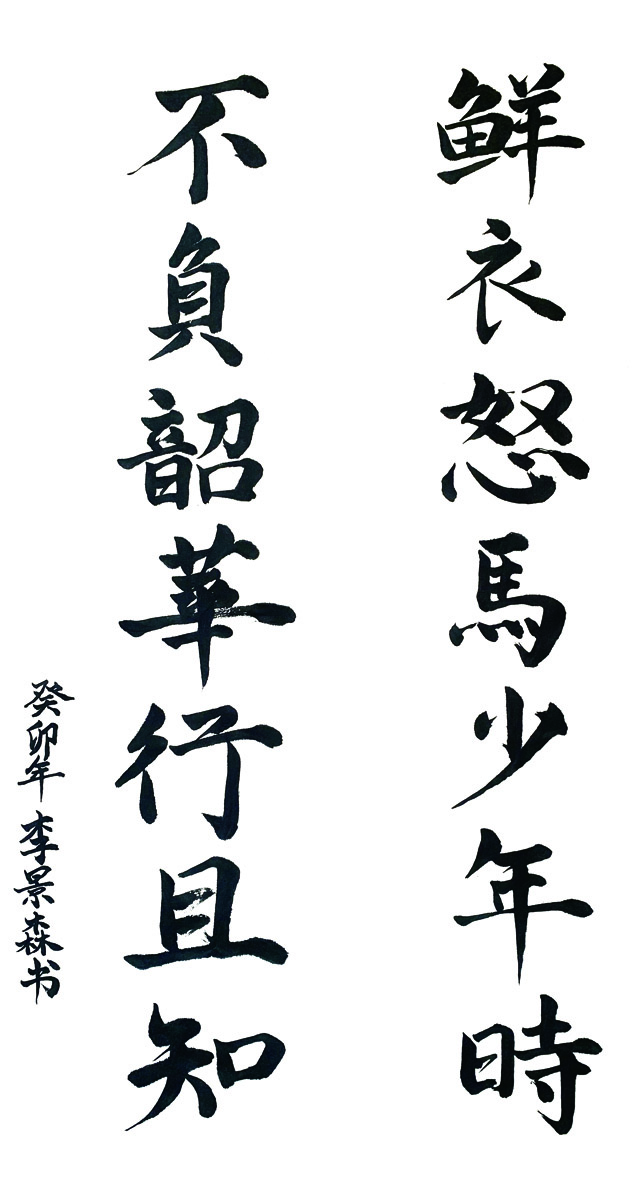 鮮衣怒馬少年時
不負韶華行且知
癸卯年 李景森书